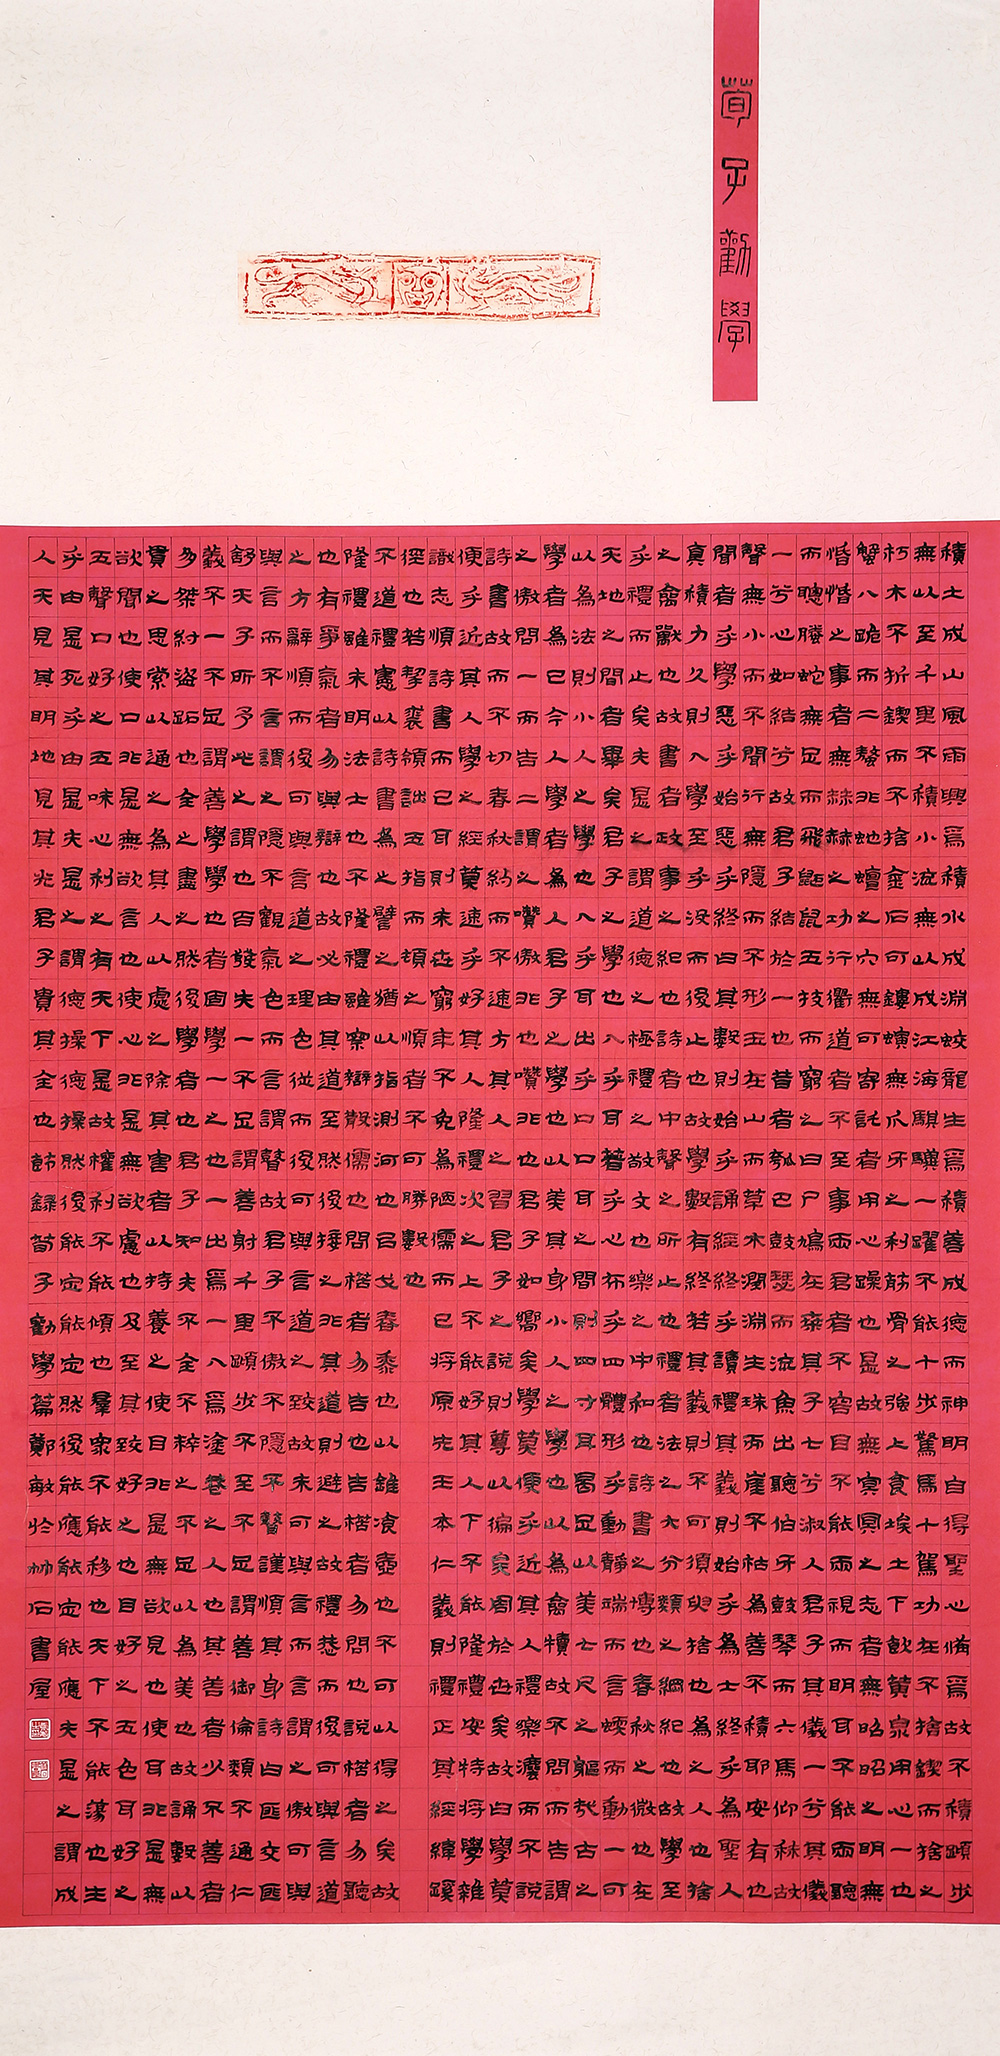 荀子勸學
積土成山風雨興焉積水成淵蛟龍生焉積善成德而神明自得聖心備焉故不積蹞步
無以至千里不積小流無以成江海騏驥一躍不能十步駑馬十駕功在不捨鍥而捨之
朽木不折鍥而不捨金石可鏤螾無爪牙之利筋骨之強上食埃土下飲黃泉用心一也
蟹八跪而二螯非虵蟺之穴無可寄託者用心躁也是故無冥冥之志者無昭昭之明無
惛惛之事者無赫赫之功行衢道者不至事兩君者不容目不能兩視而明耳不能兩聽
而聰螣蛇無足而飛鼫鼠五技而窮之曰尸鳩在桑其子七兮淑人君子其儀一兮其儀
一兮心如結兮故君子結於一也昔者瓠巴鼓瑟而流魚出聽伯牙鼓琴而六馬仰秣故
聲無小而不聞行無隱而不形玉在山而草木潤淵生珠而崖不枯為善不積耶安有也
聞者乎學惡乎始惡乎終曰其數則始乎誦經終乎讀禮其義則始乎為士終乎為聖人
真積力久則入學至乎沒而後止也故學數有終若其義則不可須臾捨也為之人也捨
之禽獸也故書者政事之紀也詩者中聲之所止也禮者法之大分類之綱紀也故學至
乎禮而止矣夫是之謂道德之極禮之敬文也樂之中和也詩書之博也春秋之微也在
天地之間者畢矣君子之學也入乎耳著乎心布乎四體形乎動靜端而言蝡而動一可
以為法則小人之學也入乎耳出乎口口耳之間則四寸耳曷足以美七尺之軀哉古之
學者為己今人學者為人君子之學也以美其身小人之學也以為禽犢故不問而告謂
之傲問一而告二謂之囋傲非也囋非也君子如嚮矣學莫便乎近其人禮樂灋而不說
詩書故而不切春秋約而不速方其人之習君子之說則尊以徧矣周於世矣故曰學莫
便乎近其人學之經莫速乎好其人隆禮次之上不能好其人下不能隆禮安特將學雜
識志順詩書而已耳則末世窮年不免為陋儒而已將原先王本仁義則禮正其經緯蹊
徑也若挈裘領詘五指而頓之順者不可勝數也
不道禮憲以詩書為之譬之猶以指測河也以戈舂黍也以錐飡壺也不可以得之矣故
隆禮雖未明法士也不隆禮雖察辯散儒也問楛者勿告也告楛者勿問也說楛者勿聽
也有爭氣者勿與辯也故必由其道至然後接之非其道則避之故禮恭而後可與言道
之方辭順而後可與言道之理色從而後可與言道之致故未可與言而言謂之傲可與
與言而不言謂之隱不觀氣色而言謂瞽故君子不傲不隱不瞽謹順其身詩曰匪交匪
舒天子所予此之謂也百發失一不足謂善射千里蹞步不至不足謂善御倫類不通仁
義不一不足謂善學學也者固學一之也一出焉一入焉塗巷之人也其善者少不善者
多桀紂盜跖也全之盡之然後學者也君子知夫不全不粹之不足以為美也故誦數以
貫之思索以通之為其人以處之除其害者以持養之使目非是無欲見也使耳非是無
欲聞也使口非是無欲言也使心非是無欲慮也及至其致好之也目好之五色耳好之
五聲口好之五味心利之有天下是故權利不能傾也群眾不能移也天下不能蕩也生
乎由是死乎由是夫是之謂德操德操然後能定能定然後能應能定能應夫是之謂成
人天見其明地見其光君子貴其全也節錄荀子勸學篇鄭敏於竹石書屋